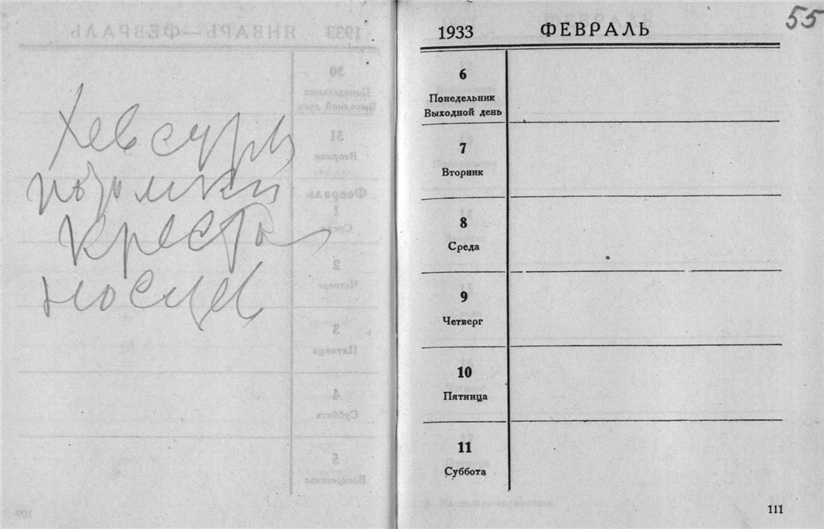 Хевсуры
потомки
кресто
носцев
55
1933 ФЕВРАЛЬ
6
Понедельник
Выходной день
7
Вторник
8
Среда
9
Четверг
10
Пятница
11
Суббота
111